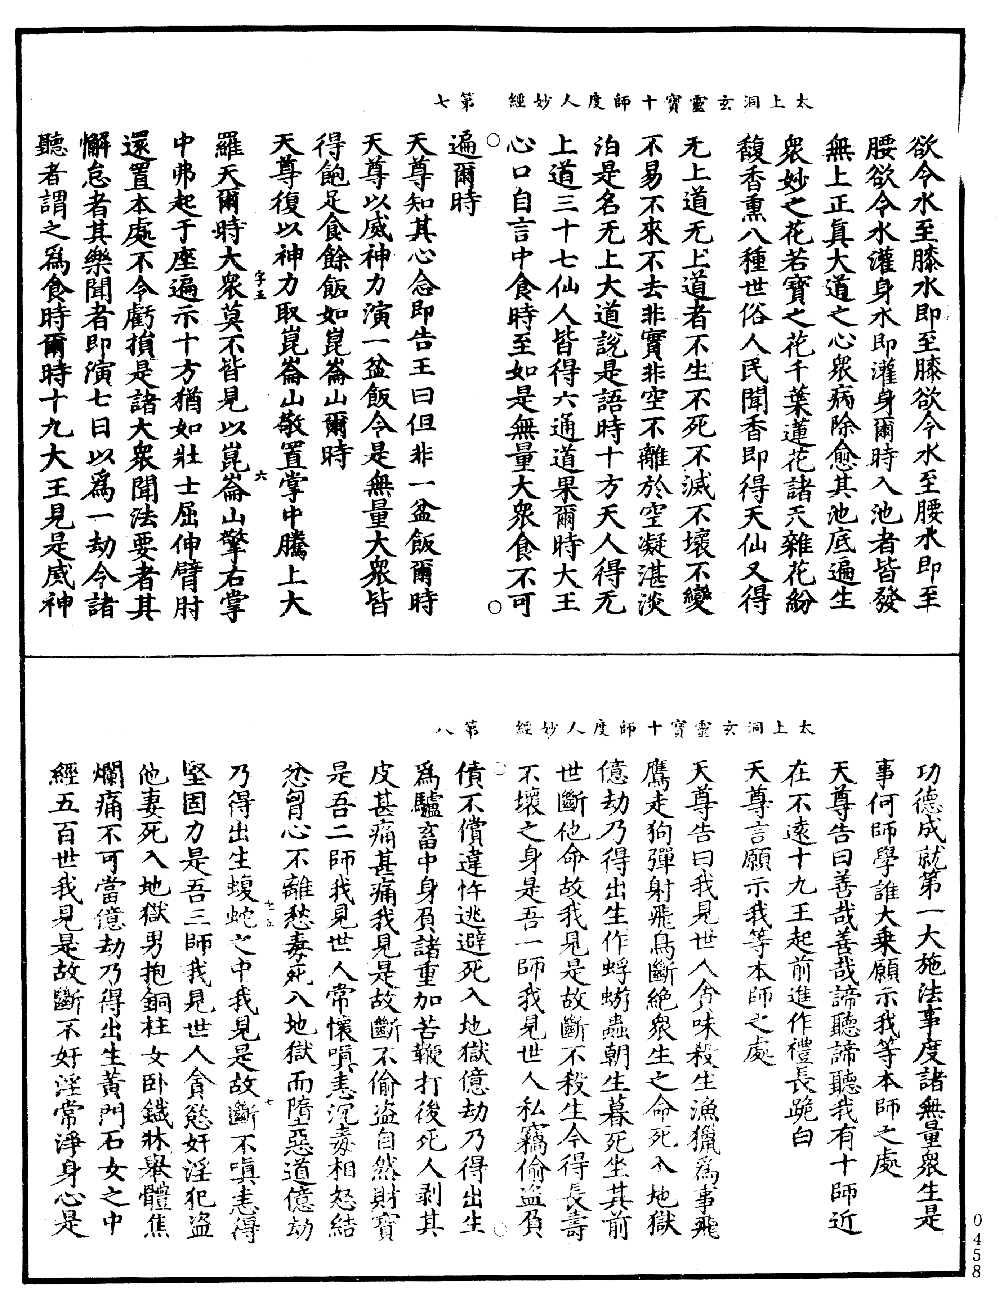 太上洞玄靈寶十師度人妙經　第七
欲令水至膝水即至膝欲令水至腰水即至
腰欲令水灌身水即灌身爾時入池者皆發
無上正真大道之心衆病除愈其池底遍生
衆妙之花若寶之花千葉蓮花諸天雜花紛
馥香熏八種世俗人民聞香即得天仙又得
无上道无上道者不生不死不滅不壞不變
不易不來不去非實非空不離於空凝湛淡
泊是名无上大道說是語時十方天人得无
上道三十七仙人皆得六通道果爾時大王
心口自言中食時至如是無量大衆食不可
遍爾時
天尊知其心念即告王曰但非一盆飯爾時
天尊以威神力演一盆飯令是無量大衆皆
得飽足食餘飯如崑崙山爾時
天尊復以神力取崑崙山敬置掌中騰上大
字五　六
羅天爾時大衆莫不皆見以崑崙山擎右掌
中弗起于座遍示十方猶如壯士屈伸臂肘
還置本處不令虧損是諸大衆聞法要者其
懈怠者其樂聞者即演七日以爲一劫令諸
聽者謂之爲食時爾時十九大王見是威神
太上洞玄靈寶十師度人妙經　第八
功德成就第一大施法事度諸無量衆生是
事何師學誰大乘願示我等本師之處
天尊告曰善哉善哉諦聽諦聽我有十師近
在不遠十九王起前進作禮長跪白
天尊言願示我等本師之處
天尊告曰我見世人貪味殺生漁獵爲事飛
鷹走狗彈射飛鳥斷絕衆生之命死入地獄
億劫乃得出生作蜉蝣蟲朝生暮死坐其前
世斷他命故我見是故斷不殺生今得長壽
不壞之身是吾一師我見世人私竊偷盜負
債不償違忤逃避死入地獄億劫乃得出生
爲驢畜中身負諸重加苦鞭打後死人剥其
皮甚痛甚痛我見是故斷不偷盜自然財寶
是吾二師我見世人常懷嗔恚沉毒相怒結
忿胷心不離愁毒死入地獄而墮惡道億劫
乃得出生蝮蛇之中我見是故斷不嗔恚得
堅固力是吾三師我見世人貪慾奸淫犯盜
他妻死入地獄男抱銅柱女卧鐵牀舉體焦
爛痛不可當億劫乃得出生黄門石女之中
經五百世我見是故斷不奸淫常淨身心是
0458